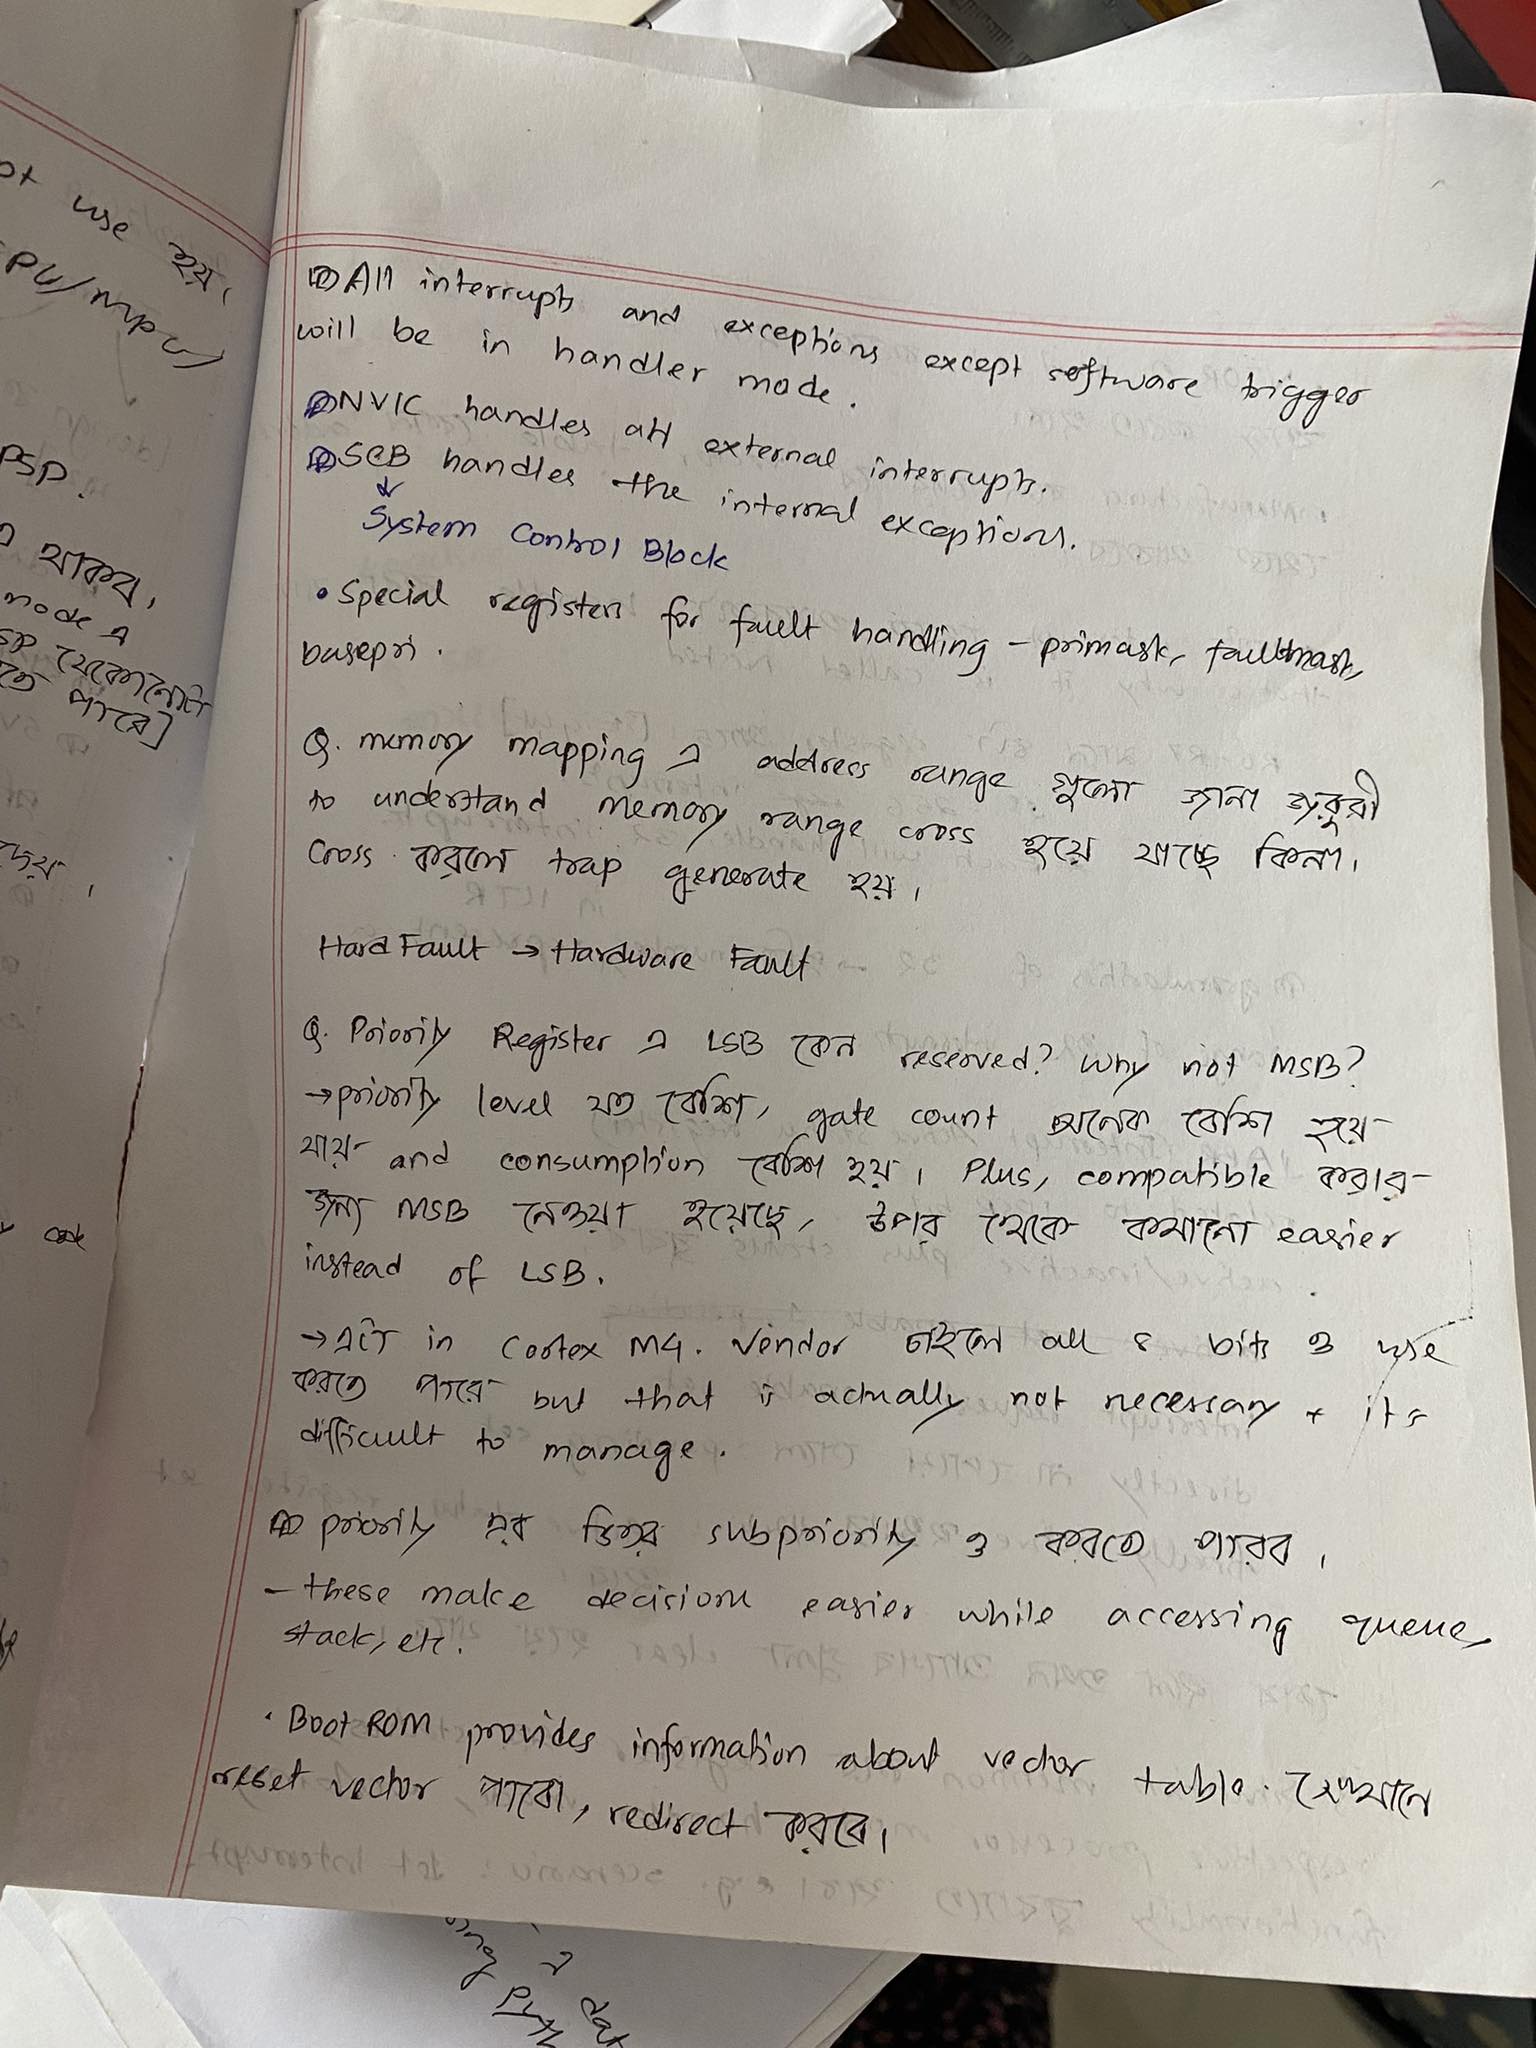 All interrupts and exceptions except software trigger
will be in handler mode.
NVIC handles all external interrupts.
SCB handles the internal exceptions.
System Control Block
• Special registers for fault handling - primask, faultmask,
basepri.
Q. memory mapping এ address range গুলো জানা জরুরী
to understand memory range cross হয়ে যাচ্ছে কিনা।
Cross করলে trap generate হয়।
Hard Fault → Hardware Fault
Q. Priority Register এ LSB কেন reserved? Why not MSB?
→ priority level যত বেশি, gate count অনেক বেশি হয়ে
যায় and consumption বেশি হয়। Plus, compatible করার
জন্য MSB নেওয়া হয়েছে, উপার থেকে কমানো easier
instead of LSB.
→ এটা in Cortex M4. Vendor চাইলে all 8 bits ও use
করতে পারে but that is actually not necessary + its
difficult to manage.
priority এর ভিতর subpriority ও করতে পারব।
- these make decisions easier while accessing queue,
stack, etc.
· Boot ROM provides information about vector table. সেখানে
reset vector পাবো, redirect করবে।
ot use হয়।
PU/MPU)
PSP.
এ থাকব।
mode এ
SP যেকোনোটা
তে পারে]
দেয়।
code